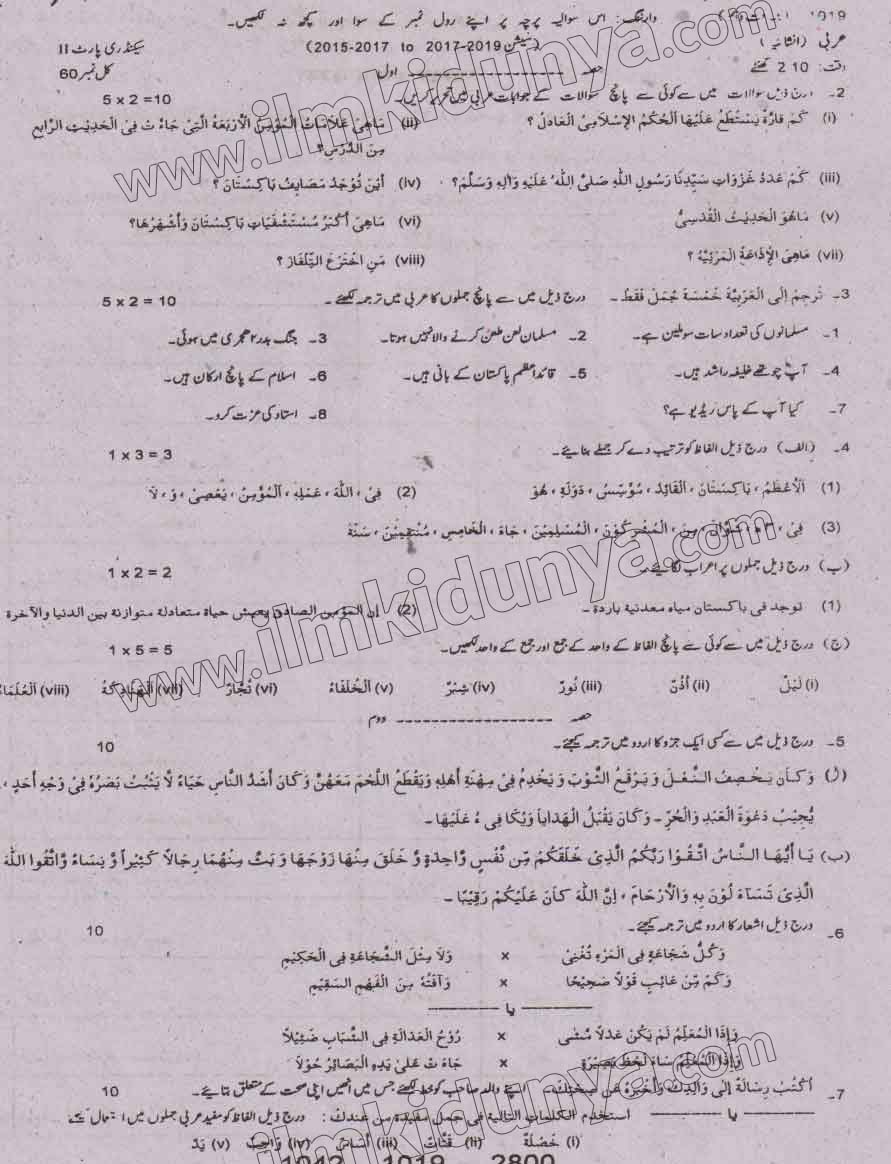 1019 وارننگ: اس سوالیہ پرچہ پر اپنے رول نمبر کے سوا اور کچھ نہ لکھیں۔
عربی (انشائیہ) (سیشن 2017-2015 to 2019-2017) سیکنڈری پارٹ II
وقت: 2:10 گھنٹے حصہ اول کل نمبر 60
2۔ درج ذیل سوالات میں سے کوئی سے پانچ سوالات کے جوابات عربی میں تحریر کریں۔ 5 x 2 =10
(i) كَمْ قَارَّةً يَسْتَطِعُ عَلَيْهَا اَلْحُكْمُ الْإِسْلَامِيُّ الْعَادِلُ ؟ (ii) مَاهِيَ عَلَامَاتُ الْمُؤْمِنِ الْأَرْبَعَةُ الَّتِيْ جَاءَتْ فِي الْحَدِيْثِ الرَّابِعِ
مِنَ الدَّرْسِ؟
(iii) كَمْ عَدَدُ غَزَوَاتِ سَيِّدِنَا رَسُوْلِ اللّٰهِ صَلَّى اللّٰهُ عَلَيْهِ وَاٰلِهٖ وَسَلَّمْ؟ (iv) أَيْنَ تُوْجَدُ مَصَايِفُ بَاكِسْتَانَ ؟
(v) مَاهُوَ الْحَدِيْثُ الْقُدْسِيُّ (vi) مَاهِيَ أَكْبَرُ مُسْتَشْفَيَاتِ بَاكِسْتَانَ وَأَشْهَرُهَا؟
(vii) مَاهِيَ الْإِذَاعَةُ الْمَرْئِيَّةُ ؟ (viii) مَنِ اخْتَرَعَ التِّلْفَازَ ؟
3۔ تَرْجِمْ إِلَى الْعَرَبِيَّةِ خَمْسَةَ جُمَلٍ فَقَطْ۔ درج ذیل میں سے پانچ جملوں کا عربی میں ترجمہ لکھئے۔ 5 x 2 = 10
1۔ مسلمانوں کی تعداد سات سو ملین ہے۔ 2۔ مسلمان لعن طعن کرنے والا نہیں ہوتا۔ 3۔ جنگ بدر ۲ ھجری میں ہوئی۔
4۔ آپ چوتھے خلیفہ راشد ہیں۔ 5۔ قائداعظم پاکستان کے بانی ہیں۔ 6۔ اسلام کے پانچ ارکان ہیں۔
7۔ کیا آپ کے پاس ریڈیو ہے؟ 8۔ استاد کی عزت کرو۔
4۔ (الف) درج ذیل الفاظ کو ترتیب دے کر جملے بنائیے۔ 1 x 3 = 3
(1) اَلْأَعْظَمُ ، بَاكِسْتَانَ ، اَلْقَائِدُ ، مُؤَسِّسُ ، دَوْلَةِ ، هُوَ (2) فِيْ ، اللّٰهَ ، عَمَلِهٖ ، اَلْمُؤْمِنُ ، يَعْصِيْ ، وَ ، لَا
(3) فِيْ ، ۳ھ ، شَوَّالَ ، مِنَ ، الْمُشْرِكُوْنَ ، الْمُسْلِمِيْنَ ، جَاءَ ، الْخَامِسِ ، مُنْتَقِمِيْنَ ، سَنَةَ
(ب) درج ذیل جملوں پر اعراب لگائیے۔ 1 x 2 = 2
(1) توجد في باكستان مياه معدنية باردة۔ (2) إن المؤمن الصادق يعيش حياة متعادلة متوازنة بين الدنيا والآخرة
(ج) درج ذیل میں سے کوئی سے پانچ الفاظ کے واحد کے جمع اور جمع کے واحد لکھیں۔ 1 x 5 = 5
(i) لَيْلٌ (ii) أُذُنٌ (iii) نُورٌ (iv) شِبْرٌ (v) اَلْخُلَفَاءُ (vi) تُجَّارٌ (vii) (viii) اَلْعُلَمَاءُ
حصہ دوم
5۔ درج ذیل میں سے کسی ایک جزو کا اردو میں ترجمہ کیجئے۔ 10
(ا) وَكَانَ يَخْصِفُ النَّعْلَ وَيَرْقَعُ الثَّوْبَ وَيَخْدِمُ فِيْ مِهْنَةِ أَهْلِهٖ وَيَقْطَعُ اللَّحْمَ مَعَهُنَّ وَكَانَ أَشَدَّ النَّاسِ حَيَاءً لَّا يَثْبُتُ بَصَرُهٗ فِيْ وَجْهِ أَحَدٍ ،
يُجِيْبُ دَعْوَةَ الْعَبْدِ وَالْحُرِّ۔ وَكَانَ يَقْبَلُ الْهَدَايَا وَيُكَافِيءُ عَلَيْهَا۔
(ب) يَا أَيُّهَا النَّاسُ اتَّقُوْا رَبَّكُمُ الَّذِيْ خَلَقَكُمْ مِّنْ نَّفْسٍ وَّاحِدَةٍ وَّ خَلَقَ مِنْهَا زَوْجَهَا وَبَثَّ مِنْهُمَا رِجَالًا كَثِيْراً وَّ نِسَاءً وَّاتَّقُوا اللّٰهَ
الَّذِيْ تَسَآءَلُوْنَ بِهٖ وَالْأَرْحَامَ ، إِنَّ اللّٰهَ كَانَ عَلَيْكُمْ رَقِيْبًا۔
6۔ درج ذیل اشعار کا اردو میں ترجمہ کیجئے۔ 10
وَكُلُّ شَجَاعَةٍ فِي الْمَرْءِ تُغْنِيْ x وَلَا مِثْلَ الشَّجَاعَةِ فِي الْحَكِيْمِ
وَكَمْ مِّنْ عَائِبٍ قَوْلًا صَحِيْحًا x وَآفَتُهٗ مِنَ الْفَهْمِ السَّقِيْمِ
یا
وَإِذَا الْمُعَلِّمُ لَمْ يَكُنْ عَدْلًا مَّشٰى x رُوْحُ الْعَدَالَةِ فِي الشَّبَابِ ضَئِيْلًا
وَإِذَا الْمُعَلِّمُ سَاءَ لَحْظَ بَصِيْرَةٍ x جَاءَتْ عَلٰى يَدِهِ الْبَصَائِرُ حُوْلًا
7۔ اُكْتُبْ رِسَالَةً إِلَى وَالِدِكَ وَأَخْبِرْهُ عَنْ صِحَّتِكَ۔ اپنے والد صاحب کو خط لکھئے جس میں انھیں اپنی صحت کے متعلق بتائیے۔ 10
یا استخدم الكلمات التالية في جمل مفيدة من عندك: درج ذیل الفاظ کو مفید عربی جملوں میں استعمال کیجئے
(i) خَصْلَةٌ (ii) (iii) أَسَاسٌ (iv) وَاجِبٌ (v) يَدٌ
1042 1019 2800
www.ilmkidunya.com
www.ilmkidunya.com
www.ilmkidunya.com